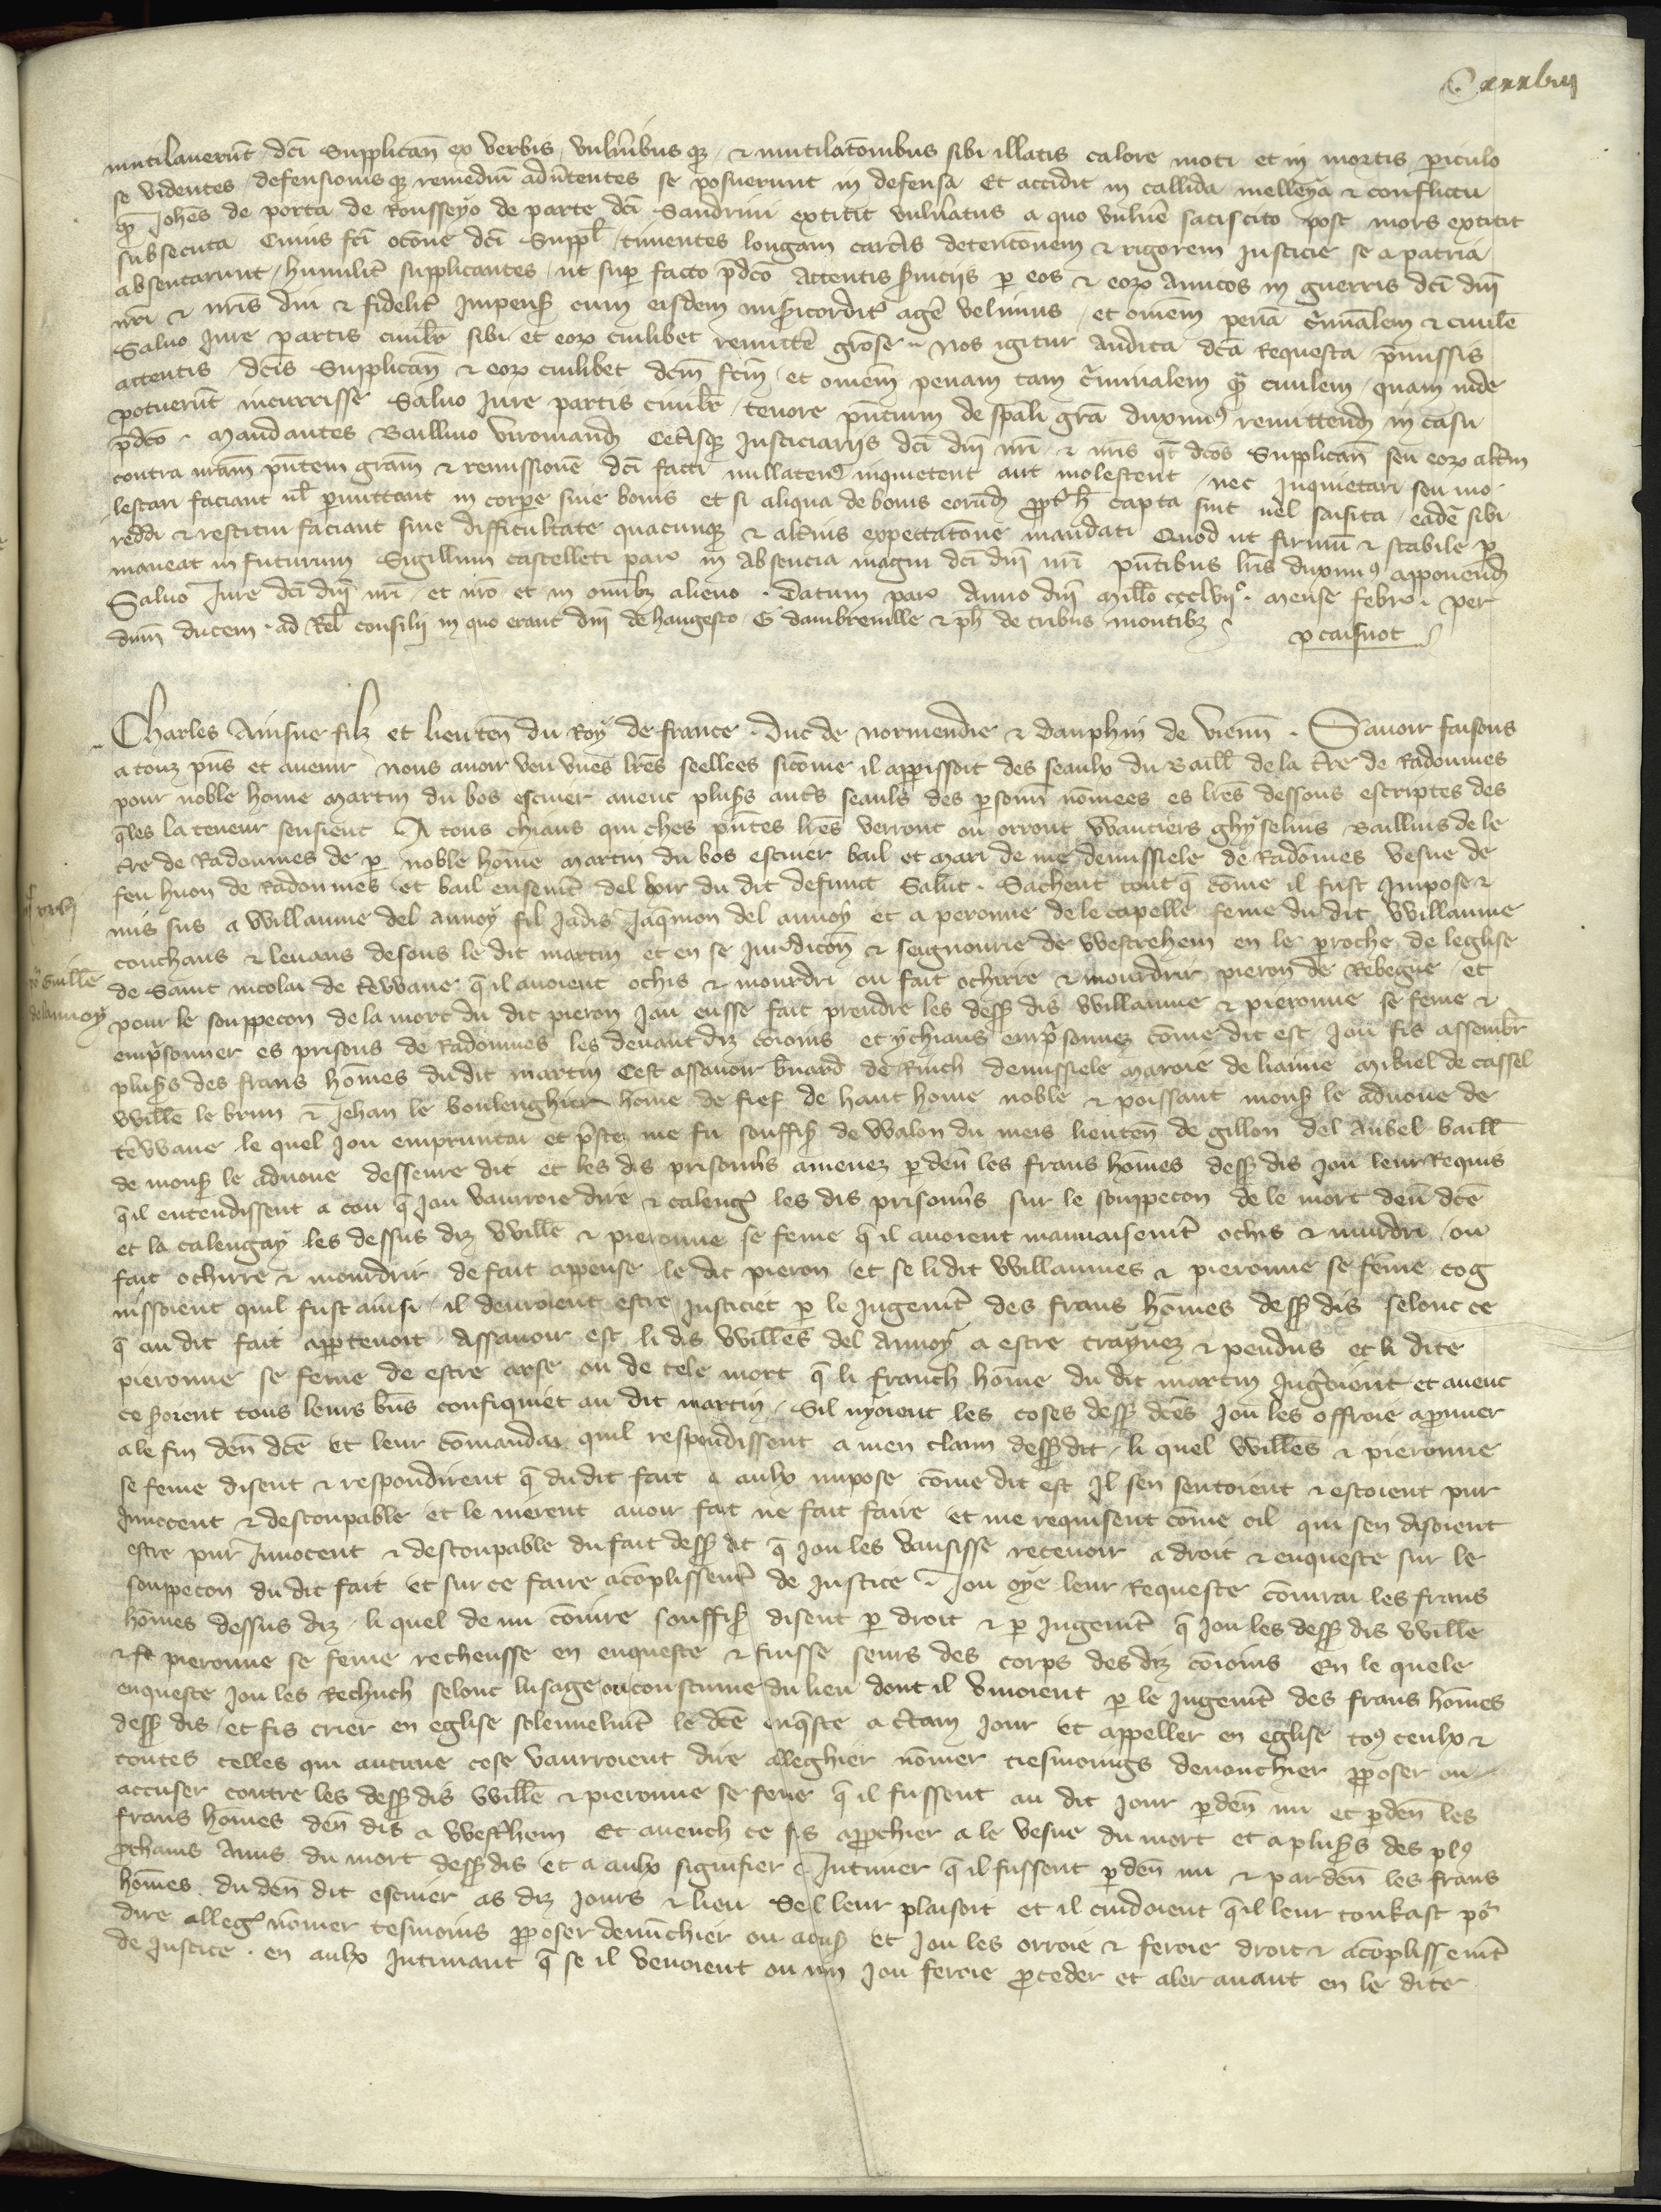 Cxxxviij
mutilaverũt dcĩ Supplicañ ex verbis vulñibus qz & mutilatõnibus sibi illatis calore moti et in mortis periculo
se videntes defensionis qz remediũ advertentes se posuerunt in defensa Et accidit in callida melleya & conflictu
qz Johẽs de porta de Rousseyo de parte dcĩ Sandrini extitit vulñatus a quo vulñe satis cito post mors extitit
subsecuta Cuius fcĩ occõne dcĩ Suppl timentes longam carcẽis detentcõnem & rigorem Justicie se a patria
absentarunt humilit̃ supplicantes ut sup facto p̃dcõ Attentis s̃viciis per eos & eorx Amicos in guerris dcĩ dñi
nr̃i & nr̃is diu & fidelit̃ Impens̃ cum eisdem mis̃icordit̃ agẽ velimus et om̃em penã c̃minalem & civilẽ
Salvo Jure partis civilit̃ sibi et eorx cuilibet remittẽ grõse Nos igitur Audita dcã Requesta p̃missis
attentis dcĩs Supplicañ & eorx cuilibet dcm̃ fcm̃ et om̃em penam tam c̃minalem q̃ civilem quam inde
potuerũt incurrisse Salvo Jure partis civilit̃ tenore pñtium de sp̃ali grã duximus remittend in casu
p̃dcõ Mandantes Baillivo Viromand Cetisqz Justiciariis dcĩ dñi nr̃i & nr̃is qt̃ dcõs Supplicañ seu eorx alt̃m
contra nr̃am pñtem grãm & remissionẽ dcĩ facti nullatenus inquietent aut molestent nec Inquietari seu mo
lestari faciant ul̃ permittant in corpore sive bonis et si aliqua de bonis eorũd propt̃ h̃ capta sint vel saisita eadẽ sibi
reddi & restitui faciant sine difficultate quacunqz & alt̃ius expectatõne mandati Quod ut firmũ & stabile p
maneat in futurum Sigillum castelleti paris in absencia magni dcĩ dñi nr̃i pñtibus lr̃is duximus apponend
Salvo Jure dcĩ dñi nr̃i et nr̃o et in omĩbz alieno . Datum paris Anno dñi Mill̃o ccclvijº . mense febro . per
dñm ducem . ad Rel̃ consilii in quo erant dñi de hangesto G dambrevill̃e & ph̃ de tribus montibz
p caisnot
Charles Ainsne filz et lieuteñ du Roy de france . Duc de normendie & dauphin de vieñ . Savoir faisons
a touz pñs et avenir nous avoir veu unes lr̃es seellees sicõme il apparissoit des seaulx du Baill̃ de la t̃re de Radoumes
pour noble hõme Martin du bos escuier avenc plus̃s aut̃s seauls des persoñ nõmees es lr̃es dessous escriptes des
q̃les la teneur sensieut A tous chiaus qui ches pñtes lr̃es verront ou orront Wautiers ghyselins Baillius de le
t̃re de Radoumes de p noble hõme Martin du bos escuier bail et mari de me demisiele de Radõmes vesve de
feu huon de Radoumes et bail ensemt̃ del hoir du dit defunct Salut . Sachent tout q̃ cõme il fust Impose &
mis sus a Willaume del Annoy fil Jadis Jaq̃mon del annoy et a peronne de le capelle feme du dit Willaume
couchans & levans desous le dit martin et en se Jurediccõn & seignourie de Westrehem en le p̃roche de leglise
de Saint nicolai de t̃ewane q̃ il avoient ochis & mourdri ou fait ochirre & mourdrir pieron de Rebeque et
pour le souppecon de la mort du dit pieron Jou eusse fait prendre les dess̃ dis Willaume & pieronne se feme &
emp̃sonner es prisons de Radoumes les devantdiz cõioins et ychiaus emp̃sonnez cõme dit est Jou fis assembl̃r
plus̃s des frans hõmes du dit martin Cest assavoir b̃nard de Rinch demisiele Maroie de liaune Mikiel de Cassel
Will̃e le brun & Jehan le boulenghier hõme de fief de haut hõme noble & poissant mons̃ le advoue de
t̃ewane le quel Jou empruntai et p̃stez me fu souffis̃ de Walon du meis lieuteñ de gillon del Aubel baill̃
de mons̃ le advoue desseure dit et les dis prisonñs amenez p devñ les frans hõmes dess̃ dis Jou leur Requis
q̃il entendissent a cou q̃ Jou vaurroie dire & calengẽ les dis prisonñs sur le souppecon de le mort devñ dcẽ
et la calengay les dessus diz Will̃e & pieronne se feme q̃ il avoient mauvaisemt̃ ochis & murdri ou
fait ochirre & mourdrir de fait appense le dit pieron et se li dit Willaumes & pieronne se feme cog
nissoient quil fust ainsi il devroient estre Justiciet p le Jugemt̃ des frans hõmes dess̃ dis selonc ce
q̃ au dit fait appartenoit Assavoir est li dis Will̃es del Annoy a estre traynez & pendus et li dite
pieronne se feme de estre arse ou de tele mort q̃ li franch hõme du dit martin Jug̃oient et avenc
ce s̃oient tous leurs bñs confisquiet au dit martin Sil nyoient les coses dess̃ dcẽs Jou les offroie a p̃uver
a le fin devñ dcẽ et leur cõmandai quil respondissent a men claim dess̃ dit li quel Will̃es & pieronne
se feme disent & respondirent q̃ du dit fait a aulx impose cõme dit est Il sen sentoient & estoient pur
Innocent & descoupable et le nierent avoir fait ne fait faire et me requisent cõme cil qui sen disoient
estre pur Innocent & descoupable du fait dess̃ dit q̃ Jou les vausisse recevoir a droit & enqueste sur le
souppecon du dit fait et sur ce faire acõplissemt̃ de Justice Jou oye leur Requeste cõiurai les frans
hõmes dessus diz li quel de mi cõiure souffis̃ disent p droit & p Jugemt̃ q̃ Jou les dess̃ dis Will̃e
& pieronne se feme recheusse en enqueste & fuisse seurs des corps des diz cõioins En le quele
enqueste Jou les Rechuch selonc lusage ou coustume du lieu dont il Usoient p le Jugemt̃ des frans hõmes
dess̃ dis et fis crier en eglise solennelmt̃ le dcẽ enq̃ste a c̃tain Jour et appeller en eglise tous ceulx &
toutes celles qui aucune cose vaurroient dire alleghier nõmer tiesmoings denonchier pposer ou
accuser contre les dess̃ dis Will̃e & pieronne se feme q̃ il fussent au dit Jour pdevñ mi et pdevñ les
frans hõmes devñ dis a West̃hem Et avench ce fis approchier a le vesve du mort et a plus̃s des plus
p̃chains Amis du mort dess̃ dis et a aulx signifier & Intimer q̃ il fussent pdevñ mi & par devñ les frans
hõmes du devñ dit escuier as diz Jours & lieu Se il leur plaisoit et il cuidoient q̃ il leur toukast pour
dire alleg̃ nõmer tesmoins pposer denũchier ou acus̃ et Jou les orroie & feroie droit & acõplissemt̃
de Justice . en aulx Intimant q̃ se il venoient ou nõ Jou feroie p̃ceder et aler avant en le dite
Guill̃e
delannoy